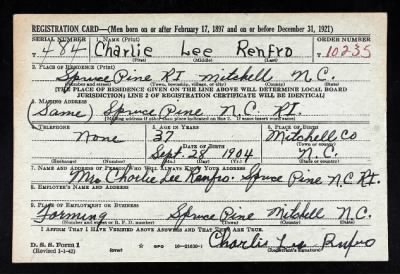 REGISTRATION CARD—(Men born on or after February 17, 1897 and on or before December 31, 1921)
SERIAL NUMBER 1. NAME (Print) ORDER NUMBER
T 484 Charlie Lee Renfro T 10235
(First) (Middle) (Last)
2. PLACE OF RESIDENCE (Print)
Spruce Pine R1 Mitchell N.C.
[THE PLACE OF RESIDENCE GIVEN ON THE LINE ABOVE WILL DETERMINE LOCAL BOARD
JURISDICTION; LINE 2 OF REGISTRATION CERTIFICATE WILL BE IDENTICAL]
3. MAILING ADDRESS
(Same) Spruce Pine N.C. R1.
4. TELEPHONE 5. AGE IN YEARS 6. PLACE OF BIRTH
None 37 Mitchell Co
DATE OF BIRTH
Sept. 28 1904 N.C.
(Exchange) (Number) (Mo.) (Day) (Yr.) (State or country)
7. NAME AND ADDRESS OF PERSON WHO WILL ALWAYS KNOW YOUR ADDRESS
Mrs Charlie Lee Renfro. Spruce Pine N.C R1.
8. EMPLOYER'S NAME AND ADDRESS
9. PLACE OF EMPLOYMENT OR BUSINESS
Farming Spruce Pine Mitchell N.C.
(Number and street or R. F. D. number) (Town) (County) (State)
I AFFIRM THAT I HAVE VERIFIED ABOVE ANSWERS AND THAT THEY ARE TRUE.
D. S. S. Form 1
(Revised 1-1-42) GPO 16—21630-1 Charlie Lee Renfro